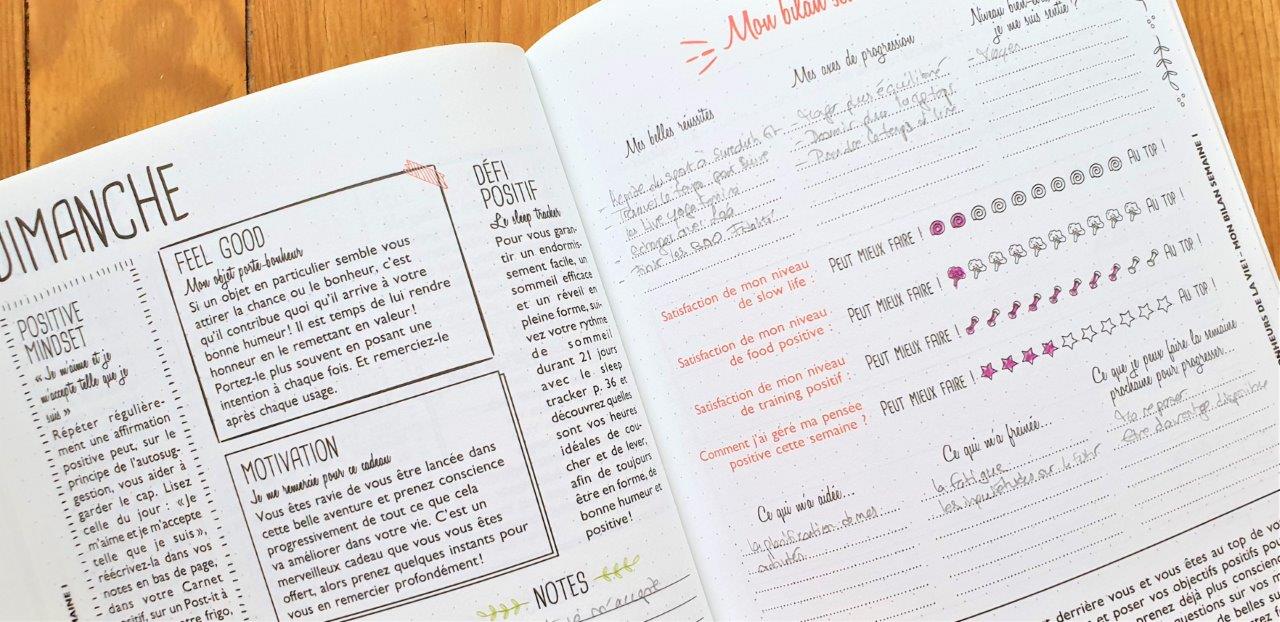 DIMANCHE
POSITIVE
MINDSET
« Je m'aime et je
m'accepte telle que je
suis »
Répéter régulière-
ment une affirmation
positive peut, sur le
principe de l'autosug-
gestion, vous aider à
garder le cap. Lisez
celle du jour : « Je
m'aime et je m'accepte
telle que je suis »,
réécrivez-la dans vos
notes en bas de page,
dans votre Carnet
sur un Post-it à
frigo,
FEEL GOOD
Mon objet porte-bonheur
Si un objet en particulier semble vous
attirer la chance ou le bonheur, c'est
qu'il contribue quoi qu'il arrive à votre
bonne humeur ! Il est temps de lui rendre
honneur en le remettant en valeur !
Portez-le plus souvent en posant une
intention à chaque fois. Et remerciez-le
après chaque usage.
MOTIVATION
Je me remercie pour ce cadeau
Vous êtes ravie de vous être lancée dans
cette belle aventure et prenez conscience
progressivement de tout ce que cela
va améliorer dans votre vie. C'est un
merveilleux cadeau que vous vous êtes
offert, alors prenez quelques instants pour
vous en remercier profondément !
DÉFI
POSITIF
Le sleep tracker
Pour vous garan-
tir un endormis-
sement facile, un
sommeil efficace
et un réveil en
pleine forme, sui-
vez votre rythme
de sommeil
durant 21 jours
avec le sleep
tracker p. 36 et
découvrez quelles
sont vos heures
idéales de cou-
cher et de lever,
afin de toujours
être en forme, de
bonne humeur et
positive !
NOTES
m'accepte
Mon bilan
Mes belles réussites
- Reprise du sport à
Mes axes de progression
- Manger plus équilibré
- Dormir plus longtemps
- Prendre le temps de lire
Niveau bien-
je me suis sentie ?
Satisfaction de mon niveau
de slow life :
PEUT MIEUX FAIRE !
AU TOP !
Satisfaction de mon niveau
de food positive :
PEUT MIEUX FAIRE !
AU TOP !
Satisfaction de mon niveau
de training positif :
PEUT MIEUX FAIRE !
AU TOP !
Comment j'ai géré ma pensée
positive cette semaine ?
PEUT MIEUX FAIRE !
AU TOP !
Ce qui m'a aidée...
la planification de mes
activités
Ce qui m'a freinée...
la fatigue
Ce que je peux faire la semaine
prochaine pour progresser...
me reposer
être davantage disponible
DE LA VIE ! – MON BILAN SEMAINE 1
derrière vous et vous êtes au top de
et poser vos objectifs positifs
prenez déjà plus
questions sur vos
de belles